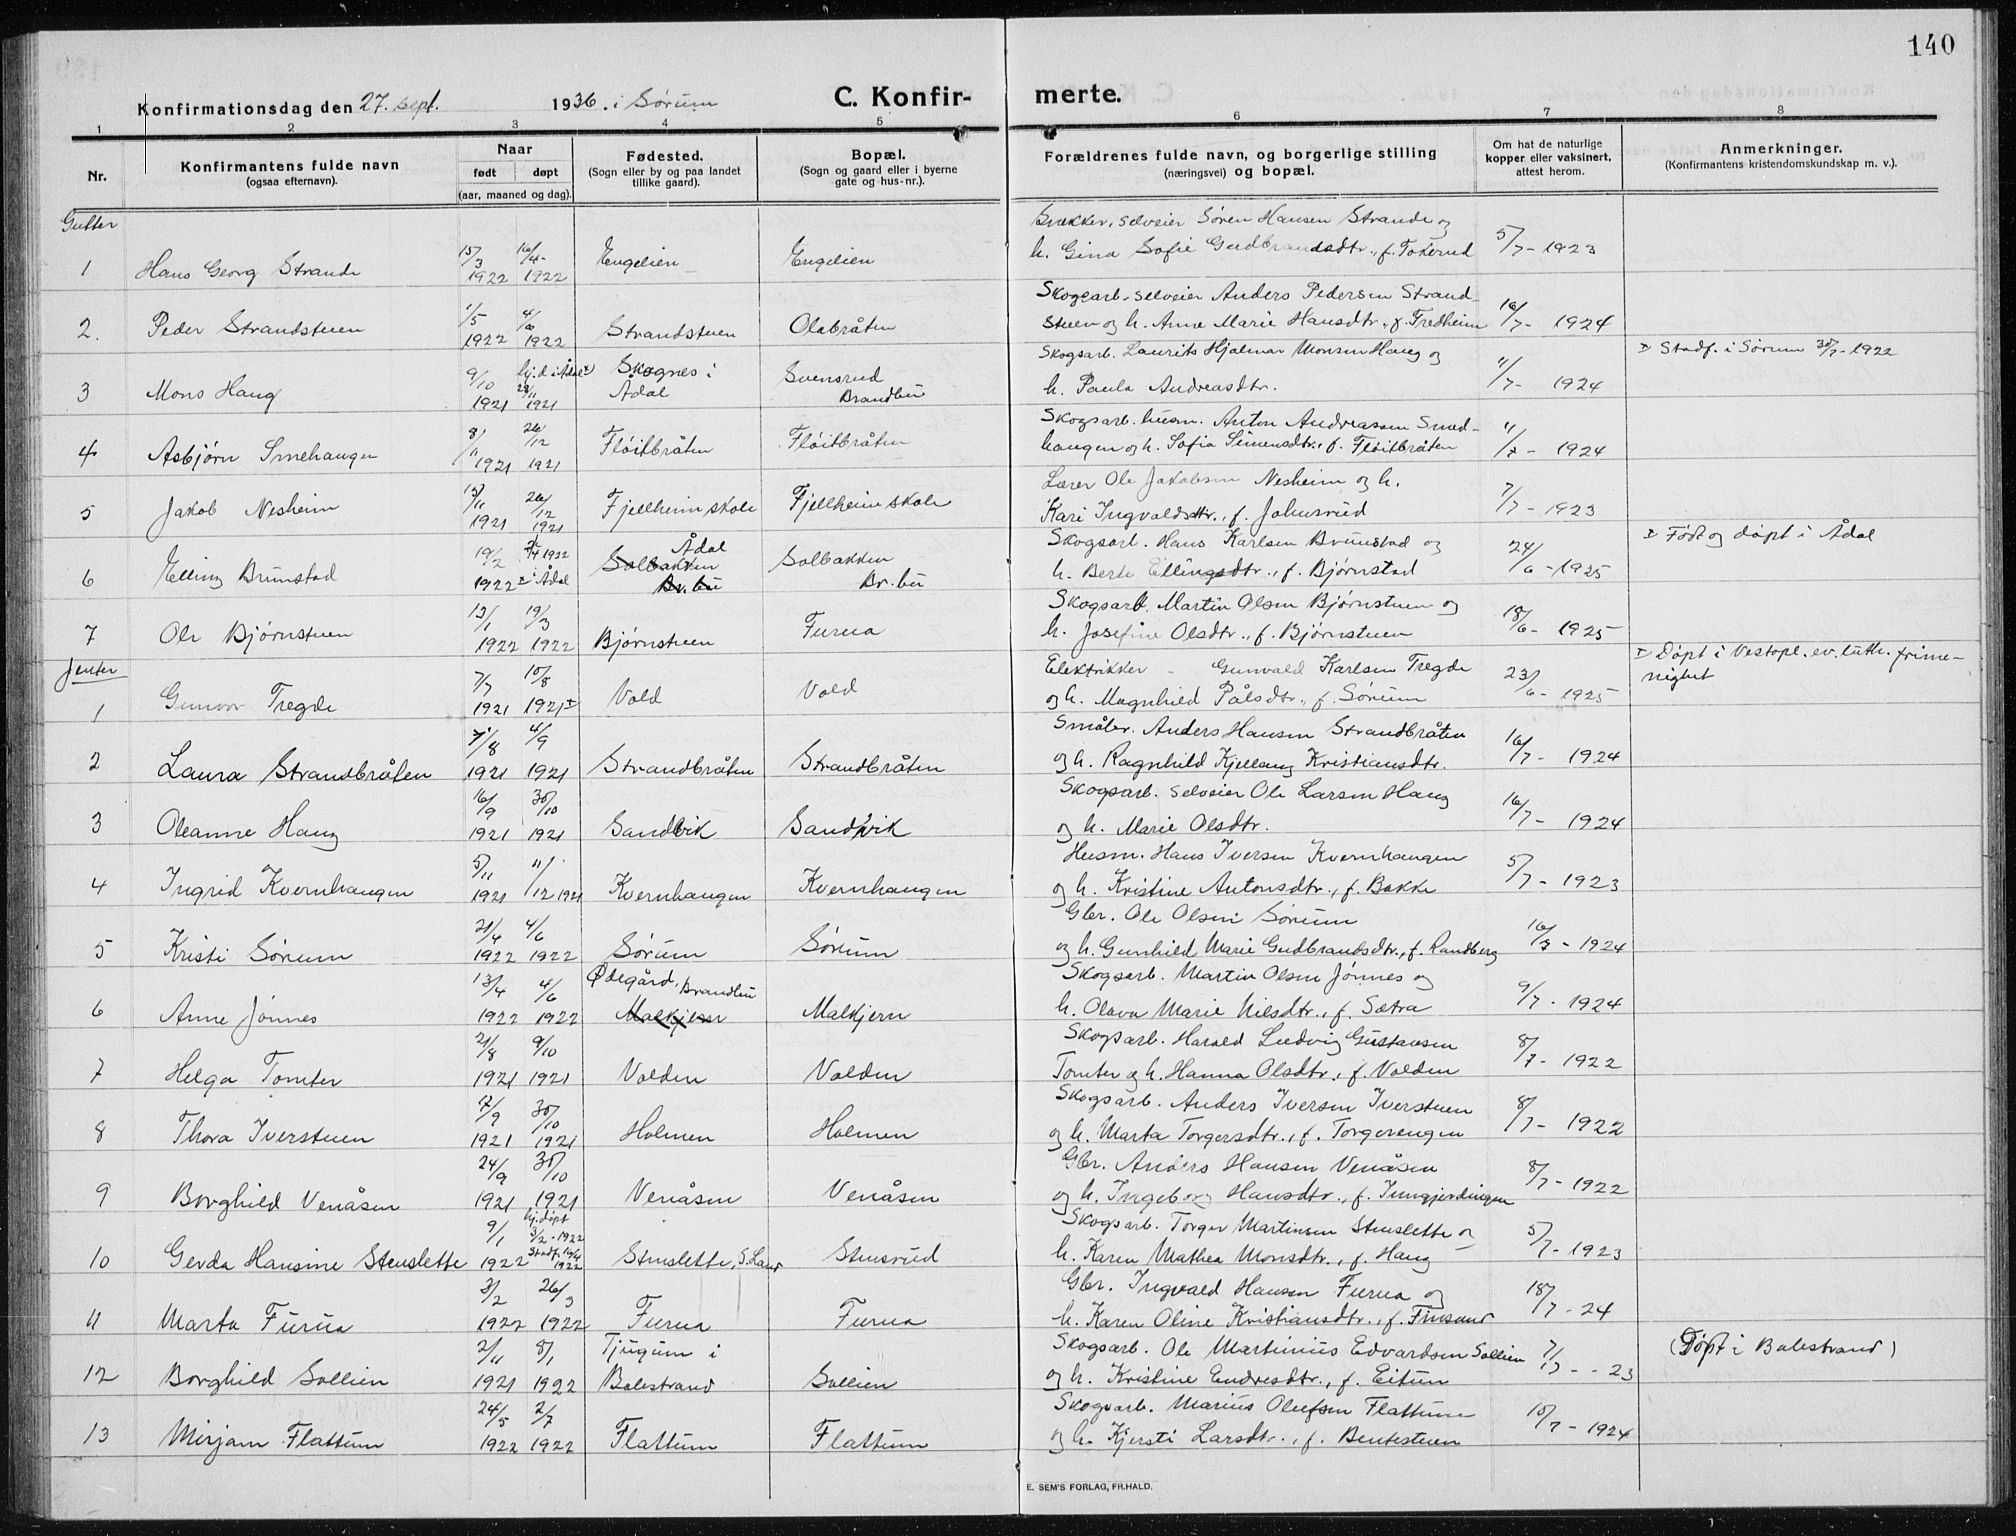 140
Konfirmationsdag den 27. sept. 1936. i Sørum C. Konfir- merte.
1 2 3 4 5 6 7 8
Nr. Konfirmantens fulde navn (ogsaa efternavn). Naar født døpt (aar, maaned og dag). Fødested. (Sogn eller by og paa landet tillike gaard). Bopæl. (Sogn og gaard eller i byerne gate og hus-nr.). Forældrenes fulde navn, og borgerlige stilling (næringsvei) og bopæl. Om hat de naturlige kopper eller vaksinert, attest herom. Anmerkninger. (Konfirmantens kristendomskundskap m. v.).
Gutter
1 Hans Georg Strande 15/3 1922 16/4- 1922 Engelien Engelien Snekker, selveier Søren Hansen Strande og
h. Gina Sofie Gudbrandsdtr., f. Tokerud 5/7 - 1923
2. Peder Strandstuen 1/5 1922 4/6 1922 Strandstuen Olabråten Skogsarb. selveier Anders Pedersen Strand-
stuen og h. Anne Marie Hansdtr., f. Fredheim 16/7 - 1924
3 Mons Haug 9/10 1921 hj.d. i Ådal 1921 Skognes i Ådal Svensrud Brandbu Skogsarb. Laurits Hjalmar Monsen Haug og
h. Paula Andreasdtr. 11/7 - 1924 Stadf. i Sørum 30/7-1922
4 Asbjørn Smehaugen 8/11 1921 26/12 1921 Fløitbråten Fløitbråten Skogsarb. husm. Anton Andreassen Smed-
haugen og h. Sofia Simensdtr., f. Fløitbråten 11/7 - 1924
5 Jakob Nesheim 15/11 1921 26/12 1921 Fjellheim skole Fjellheim skole Lærer Ole Jakobsen Nesheim og h.
Kari Ingvaldsdtr., f. Johnsrud 7/7 - 1923
6 Elling Brunstad 19/2 1922 1922 i Ådal Ådal Solbakken Br.bu Solbakken Br.bu Skogsarb. Hans Karlsen Brunstad og
h. Berte Ellingsdtr., f. Bjørnstad 24/6 - 1925 Født og døpt i Ådal
7 Ole Bjørnstuen 13/1 1922 19/3 1922 Bjørnstuen Furua Skogsarb. Martin Olsen Bjørnstuen og
h. Josefine Olsdtr., f. Bjørnstuen 18/6 - 1925
Jenter
1 Gunvor Tregde 7/7 1921 10/8 1921 Vold Vold Elektrikker - Gunvald Karlsen Tregde
og h. Magnhild Pålsdtr., f. Sørum 23/6 - 1925 Døpt i Vestopl. ev. luth. frime-
nighet
2 Laura Strandbråten 7/8 1921 4/9 1921 Strandbråten Strandbråten Småbr. Anders Hansen Strandbråten
og h. Ragnhild Kjellaug Kristiansdtr. 16/7 - 1924
3 Oleanne Haug 16/9 1921 30/10 1921 Sandvik Sandvik Skogsarb. selveier Ole Larsen Haug
og h. Marie Olsdtr. 16/7 - 1924
4 Ingrid Kvernhaugen 5/11 1921 11/12 1921 Kvernhaugen Kvernhaugen Husm. Hans Iversen Kvernhaugen
og h. Kristine Antonsdtr., f. Bakke 5/7 - 1923
5 Kristi Sørum 21/4 1922 4/6 1922 Sørum Sørum Gbr. Ole Olsen Sørum
og h. Gunhild Marie Gudbrandsdtr., f. Randberg 16/7 - 1924
6 Anne Jønnes 13/4 1922 4/6 1922 Ødegård, Brandbu Malkjern Malkjern Skogsarb. Martin Olsen Jønnes og
h. Olava Marie Nilsdtr., f. Sætra 9/7 - 1924
7 Helga Tomter 21/8 1921 9/10 1921 Volden Volden Skogsarb. Harald Ludvig Gustavsen
Tomter og h. Hanna Olsdtr., f. Volden 8/7 - 1922
8 Thora Iverstuen 7/9 1921 30/10 1921 Holmen Holmen Skogsarb. Anders Iversen Iverstuen
og h. Marta Torgersdtr., f. Torgerengen 8/7 - 1922
9 Borghild Venåsen 24/9 1921 30/10 1921 Venåsen Venåsen Gbr. Anders Hansen Venåsen
og h. Ingeborg Hansdtr., f. Jungjerdingen 8/7 - 1922
10 Gerda Hansine Stenslette 9/1 1922 hj. døpt 3/2-1922 Stadf. 16/4 1922 Stenslette, S. Land Stensrud Skogsarb. Torger Martinsen Stenslette og
h. Karen Mathea Monsdtr., f. Haug 5/7 - 1923
11 Marta Furua 3/2 1922 26/3 1922 Furua Furua Gbr. Ingvald Hansen Furua og
h. Karen Oline Kristiansdtr., f. Finsand 18/7 - 24
12 Borghild Sollien 2/11 1921 8/1 1922 Tjugum i Balestrand Sollien Skogsarb. Ole Martinius Edvardsen Sollien
og h. Kristine Endresdtr., f. Eitun - 23 (Døpt i Balestrand)
13 Mirjam Flattum 24/5 1922 2/7 1922 Flattum Flattum Skogsarb. Marius Olufsen Flattum
og h. Kjersti Larsdtr., f. Bentestuen 10/7 - 1924
E. SEM'S FORLAG, FR.HALD.